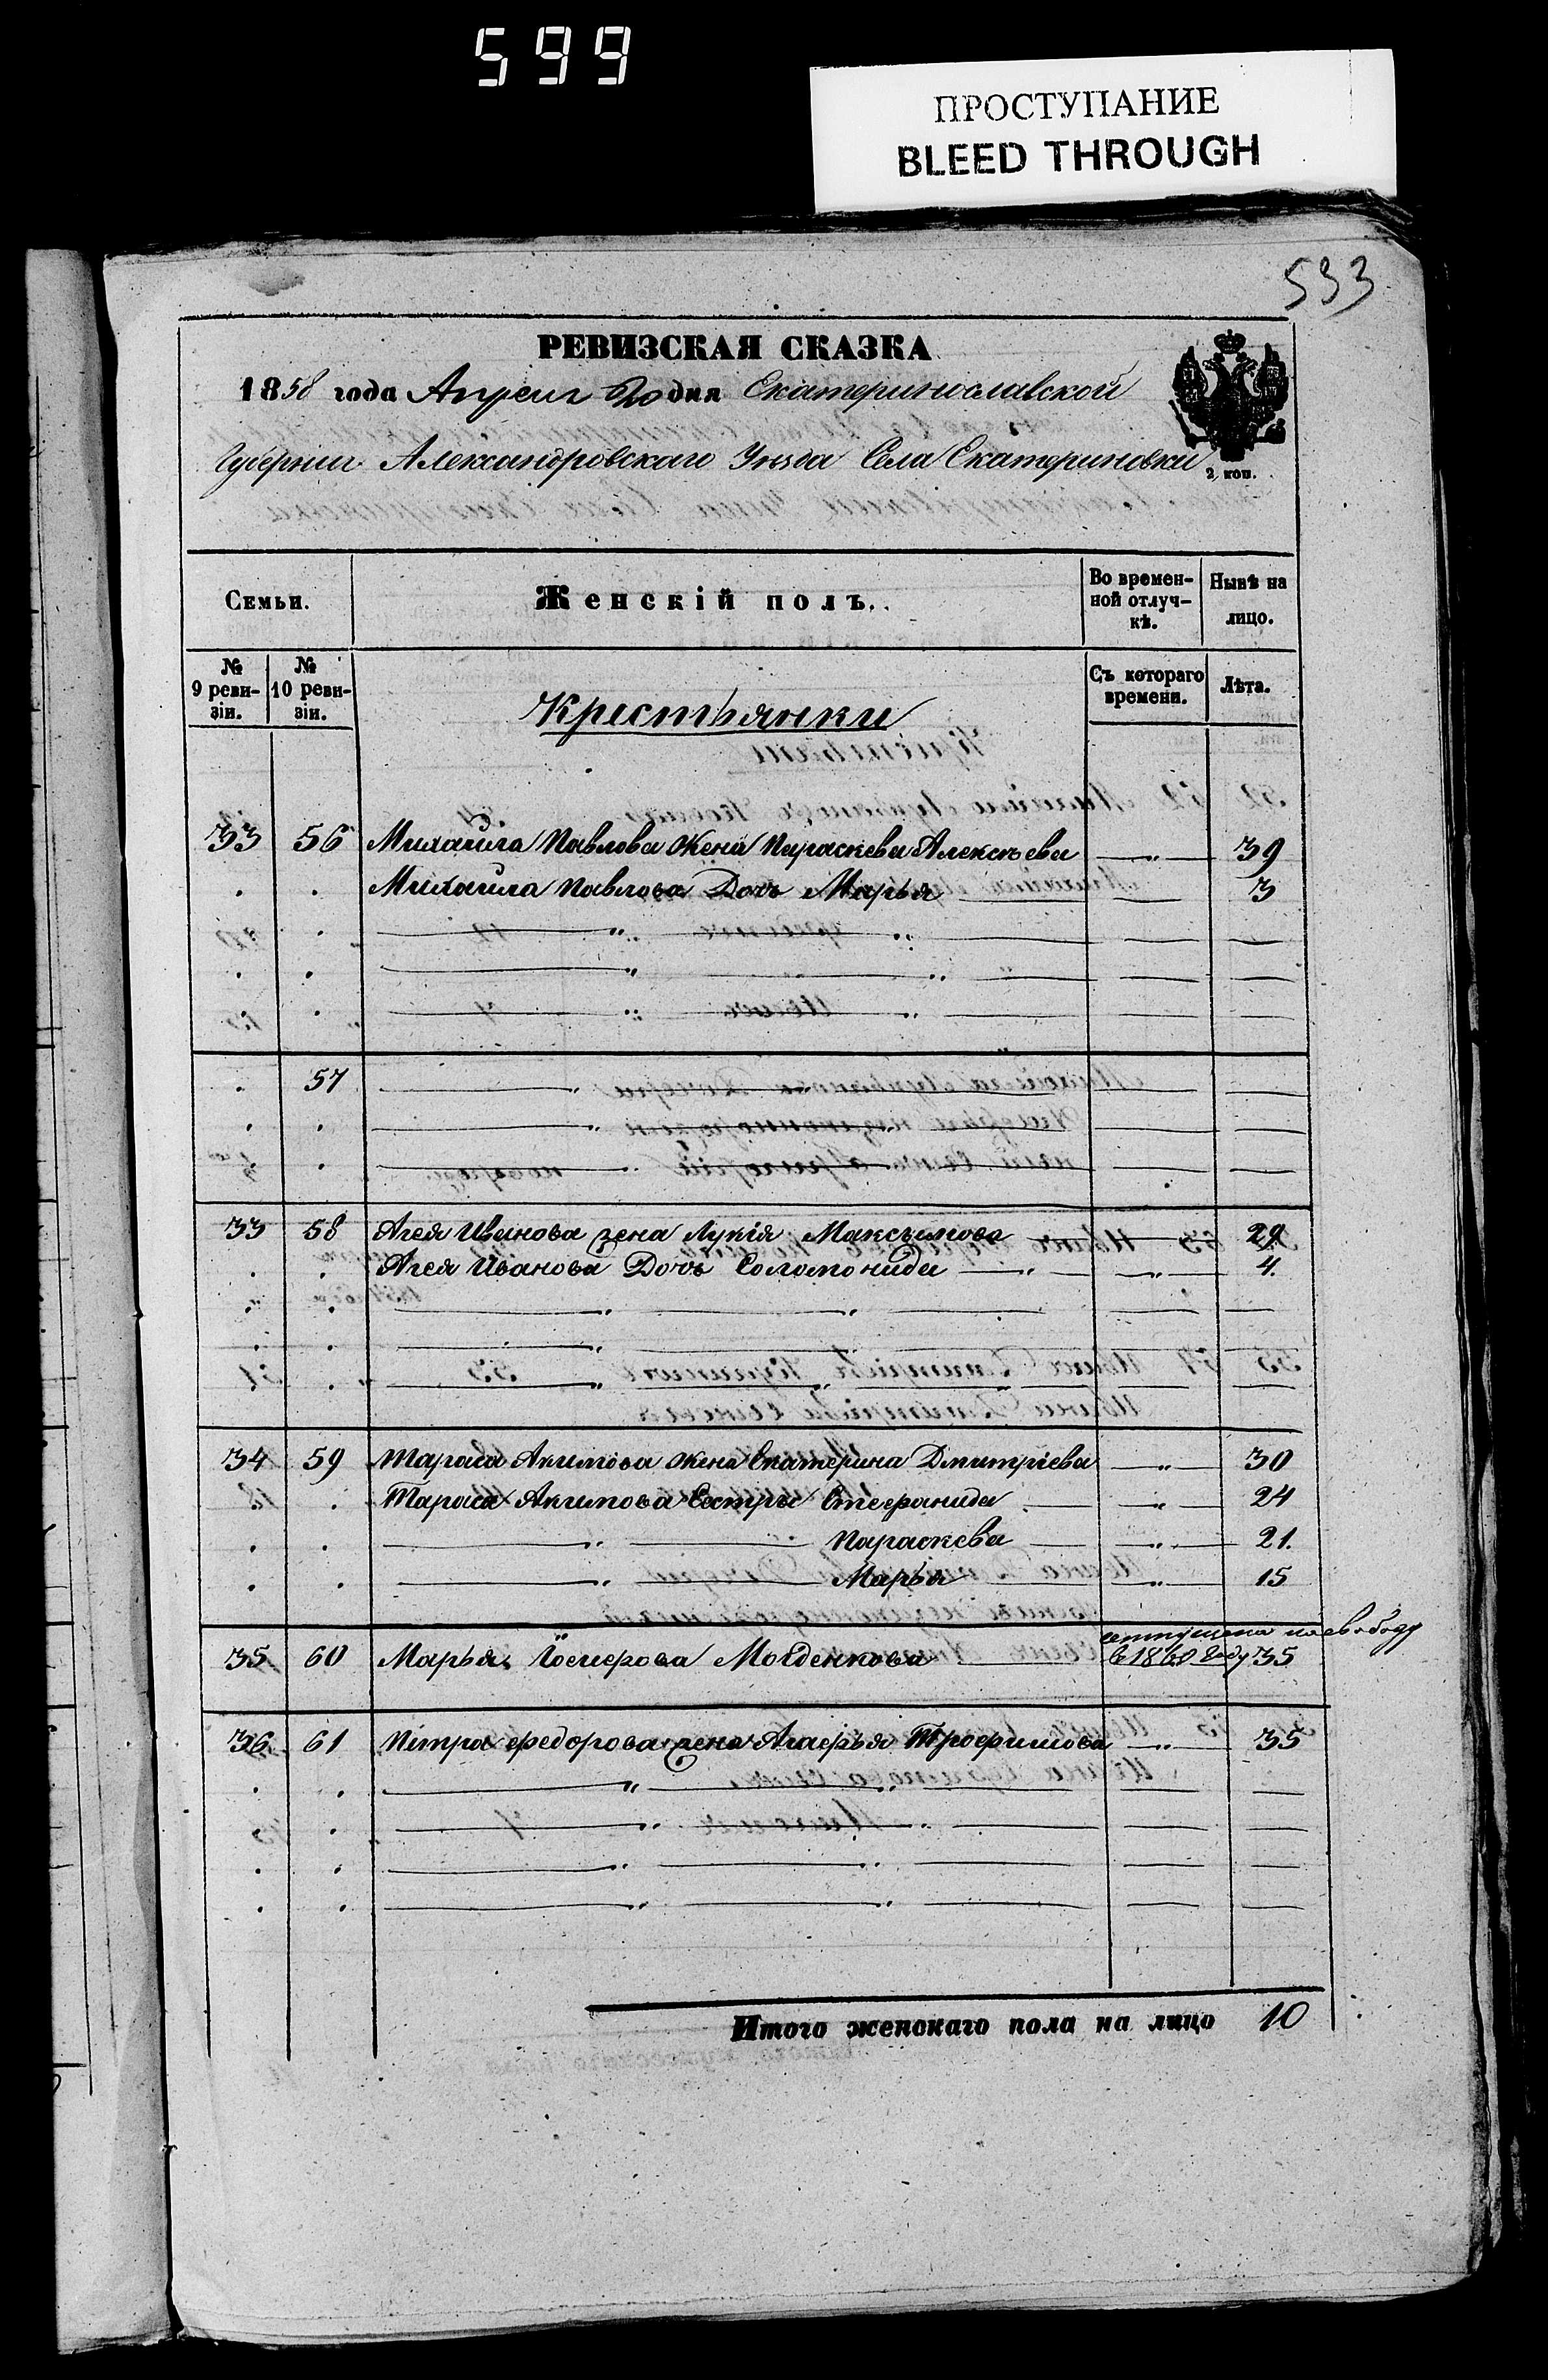 599
ПРОСТУПАНИЕ
BLEED THROUGH
593
РЕВИЗСКАЯ СКАЗКА
1858 года Апреля 20 дня Екатеринославской
Губернии Александровскаго Уѣзда Села Екатериновки
2 коп.
Семьи. Женскій полъ. Во времен- Нынѣ на
ной отлуч- лицо.
кѣ.
№ 9 реви-зіи. № 10 реви-зіи. Съ котораго времени. Лѣта.
Крестьянки
33 56 Михайла Павлова жена Параскева Алексѣева 39
Михайла Павлова Дочь Марья 3
57
33 58 Агея Иванова жена Лукія Максимова 29
Агея Иванова Дочь Соломонида 4.
34 59 Тараса Акимова жена Екатерина Дмитріева 30
Тараса Акимова Сестры Стефанида 24
Параскева 21.
Марья 15
отпущена на свободу
35 60 Марья в 1860 году 35
36 61 Петра Федорова жена Агафья Трофимова 35
Итого женскаго пола на лицо 10